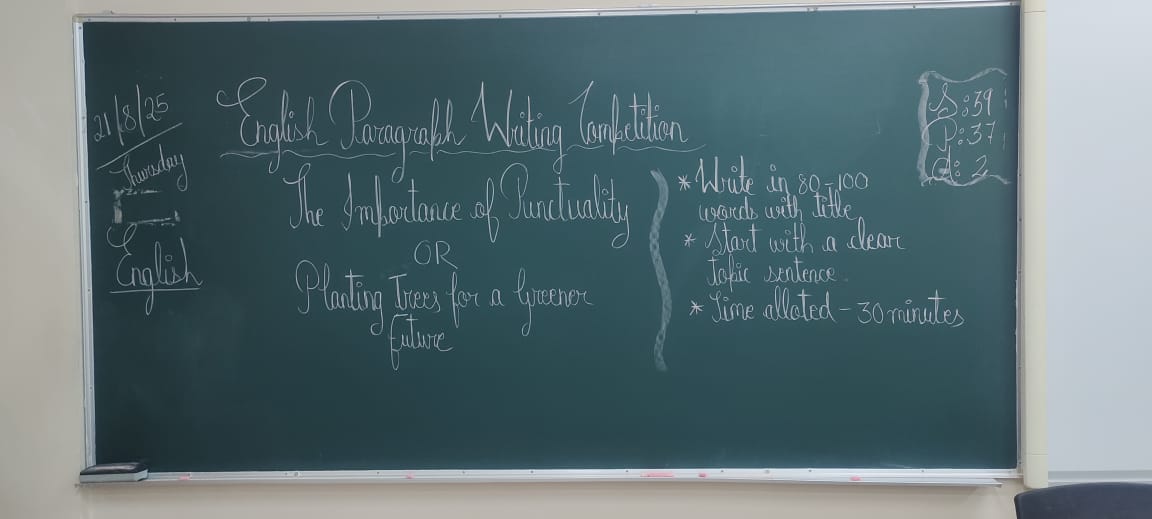 21/8/25
Thursday
English
English Paragraph Writing Competition
The Importance of Punctuality
OR
Planting Trees for a Greener
future
* Write in 80-100
words with title
* Start with a clear
topic sentence.
* Time alloted - 30 minutes
S:39
P:37
a: 2